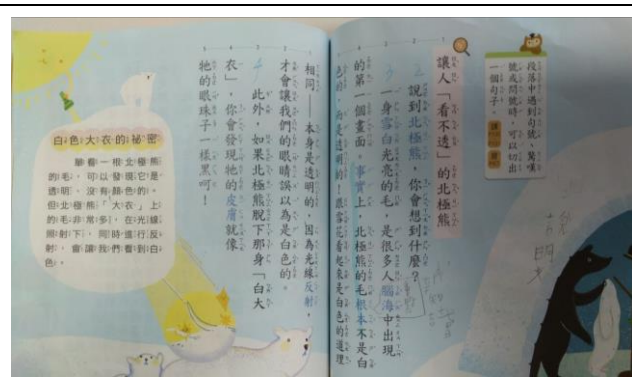 段落中遇到句號、驚嘆
號或問號時,可以切出
一個句子。
讓人「看不透」的北極熊
說到北極熊,你會想到什麼?
一身雪白光亮的毛,是很多人腦海中出現
的第一個畫面。事實上,北極熊的毛根本不是白
色的,而是透明的!跟雪花看起來是白色的道理
相同——本身是透明的,因為光線反射,
才會讓我們的眼睛誤以為是白色的。
此外,如果北極熊脫下那身「白大
衣」,你會發現牠的皮膚就像
牠的眼珠子一樣黑呵!
白色大衣的祕密
單看一根北極熊
的毛,可以發現它是
透明、沒有顏色的。
但北極熊「大衣」上
的毛非常多,在光線
照射下,同時進行反
射,會讓我們看到白
色。